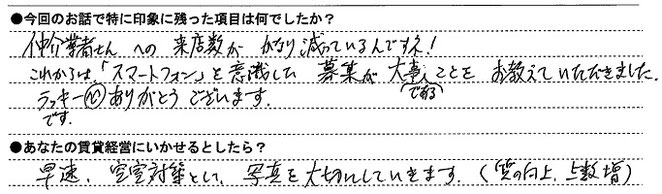 ●今回のお話で特に印象に残った項目は何でしたか？
仲介業者さんへの来店数がかなり減っているんですネ！
これからは、「スマートフォン」を意識した募集が大事なことをお教えていただきました。
(である)
ラッキー♡ありがとうございます。
です。
●あなたの賃貸経営にいかせるとしたら？
早速、空室対策として、写真を大切にしていきます。（質の向上、点数増）